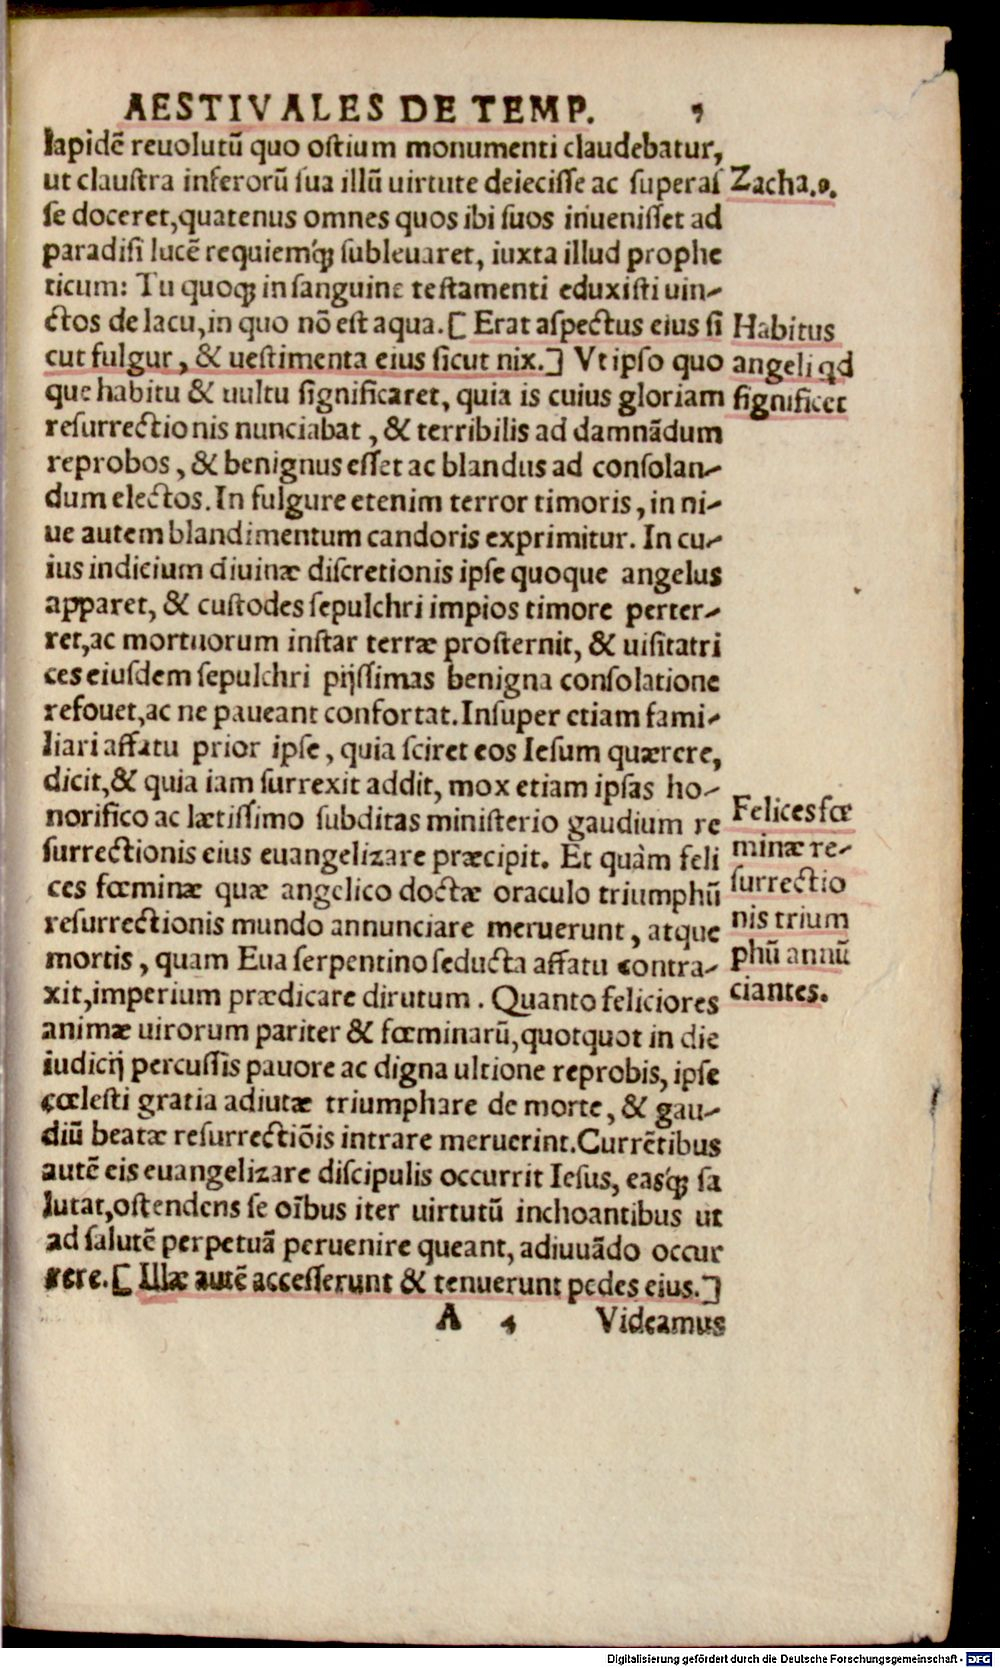 AESTIVALES DE TEMP. 7
lapidē reuolutū quo ostium monumenti claudebatur,
ut claustra inferorū sua illū uirtute deiecisse ac superas
Zacha.9.
se doceret,quatenus omnes quos ibi suos inuenisset ad
paradisi lucē requiemq́ꝫ subleuaret, iuxta illud prophe
ticum: Tu quoqꝫ in sanguine testamenti eduxisti uin-
ctos de lacu,in quo nō est aqua.[ Erat aspectus eius si
cut fulgur, & uestimenta eius sicut nix.] Vt ipso quo
que habitu & uultu significaret, quia is cuius gloriam
Habitus
angeli qd
significet
resurrectionis nunciabat, & terribilis ad damnādum
reprobos, & benignus esset ac blandus ad consolan-
dum electos. In fulgure etenim terror timoris, in ni-
ue autem blandimentum candoris exprimitur. In cu-
ius indicium diuinæ discretionis ipse quoque angelus
apparet, & custodes sepulchri impios timore perter-
ret,ac mortuorum instar terræ prosternit, & uisitatri
ces eiusdem sepulchri pijssimas benigna consolatione
refouet,ac ne paueant confortat. Insuper etiam fami-
liari affatu prior ipse, quia sciret eos Iesum quærere,
dicit,& quia iam surrexit addit, mox etiam ipsas ho-
norifico ac lætissimo subditas ministerio gaudium re
surrectionis eius euangelizare præcipit. Et quàm feli
ces fœminæ quæ angelico doctæ oraculo triumphū
resurrectionis mundo annunciare meruerunt, atque
mortis, quam Eua serpentino seducta affatu contra-
xit,imperium prædicare dirutum. Quanto feliciores
Felices fœ
minæ re-
surrectio
nis trium
phū annū
ciantes.
animæ uirorum pariter & fœminarū,quotquot in die
iudicij percussis pauore ac digna ultione reprobis, ipse
cœlesti gratia adiutæ triumphare de morte, & gau-
diū beatæ resurrectiōis intrare meruerint.Currētibus
autē eis euangelizare discipulis occurrit Iesus, easq́ꝫ sa
lutat,ostendens se oībus iter uirtutū inchoantibus ut
ad salutē perpetuā peruenire queant, adiuuādo occur
rere.[ Illæ autē accesserunt & tenuerunt pedes eius.]
A 4 Videamus
Digitalisierung gefördert durch die Deutsche Forschungsgemeinschaft - DFG